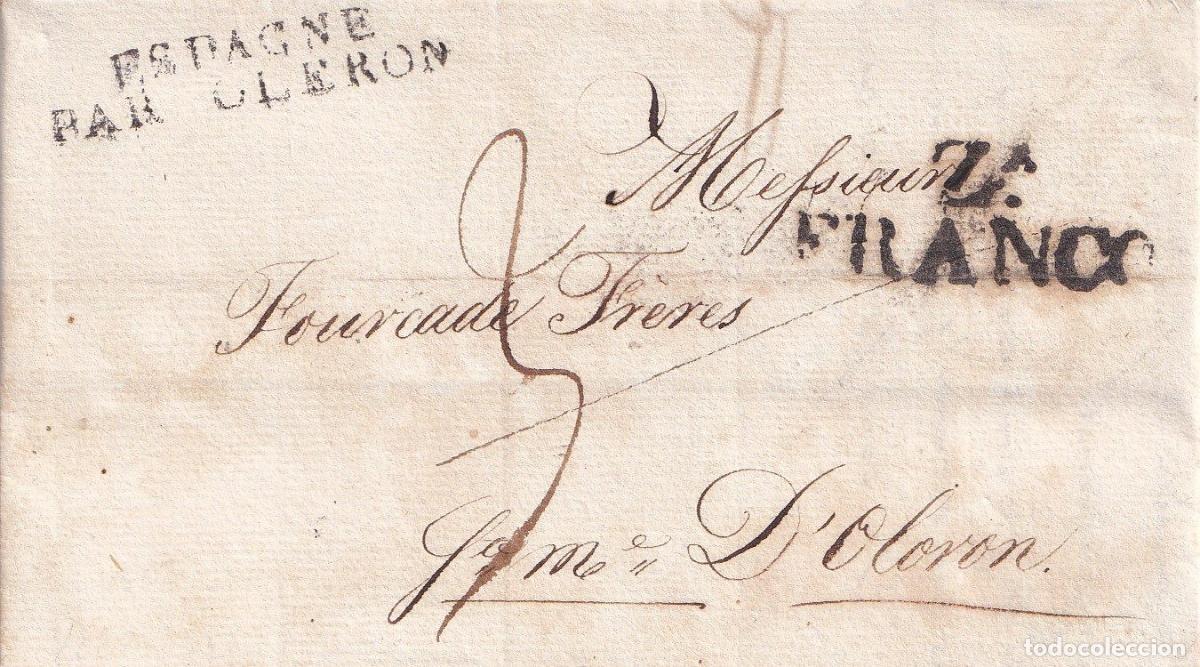 ESPAGNE
PAR OLERON
Messieurs
Zª.
FRANCO
Fourcade Frères
3
Sᵗᵉ Mᵉ D'Oloron.
todocoleccion